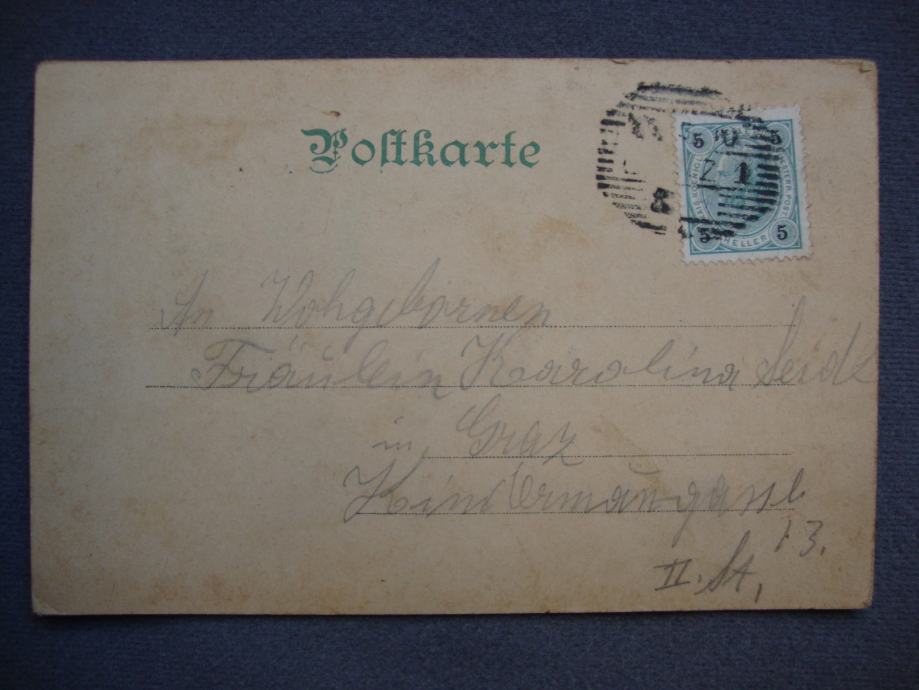 Postkarte
5 5
5 HELLER 5
An Wohgebornen
Fräulein Karolina Seidl
in Graz
Kindermanngasse
13.
II. St,